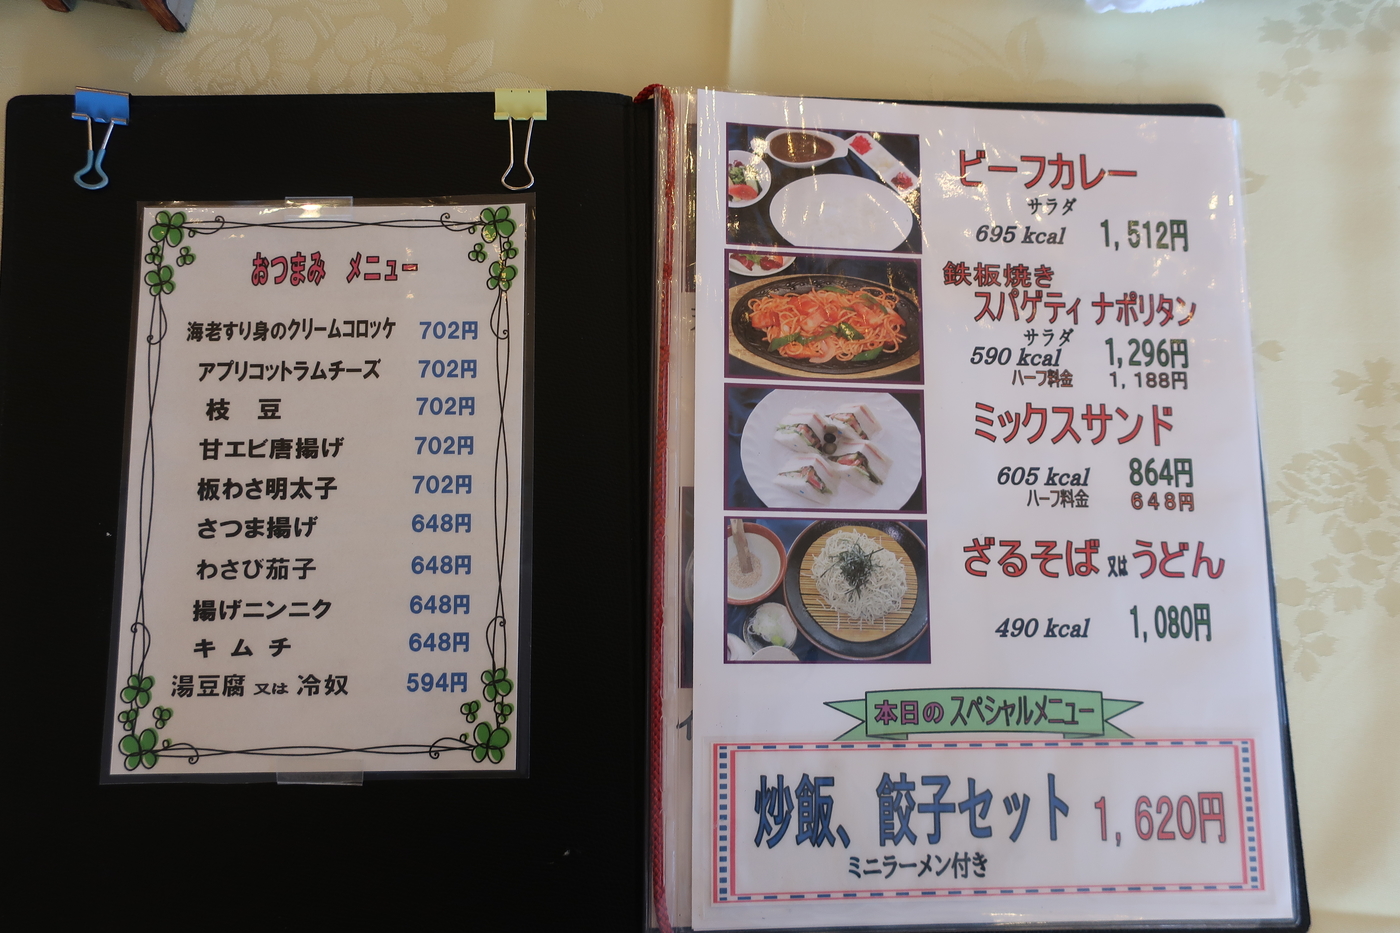 おつまみ メニュー
海老すり身のクリームコロッケ 702円
アプリコットラムチーズ 702円
枝 豆 702円
甘エビ唐揚げ 702円
板わさ明太子 702円
さつま揚げ 648円
わさび茄子 648円
揚げニンニク 648円
キ ム チ 648円
湯豆腐 又は 冷奴 594円
ビーフカレー
サラダ
695 kcal 1,512円
鉄板焼き
スパゲティ ナポリタン
サラダ
590 kcal 1,296円
ハーフ料金 1,188円
ミックスサンド
605 kcal 864円
ハーフ料金 648円
ざるそば又はうどん
490 kcal 1,080円
本日の スペシャルメニュー
炒飯、餃子セット 1,620円
ミニラーメン付き